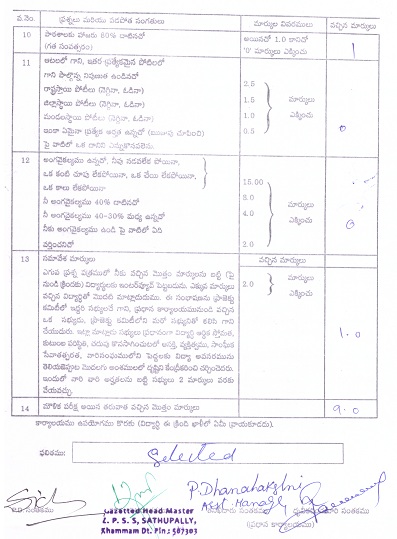 వ.నెం. ప్రశ్నలు మరియు పరపోత సంగతులు మార్కుల వివరములు వచ్చిన మార్కులు
10 పాఠశాలకు హాజరు 60% దాటినచో అయినచో 1.0 కానిచో 1
(గత సంవత్సరం) '0' మార్కులు ఎక్కించు
11 ఆటలలో గాని, ఇతర ప్రత్యేకమైన పోటీలలో
గాని పాల్గొన్న నిపుణుత ఉండినచో 2.5
రాష్ట్రస్థాయి పోటీలు (నెగ్గినా, ఓడినా) 1.5 మార్కులు
జిల్లాస్థాయి పోటీలు (నెగ్గినా, ఓడినా) 1.0 ఎక్కించు
మండలస్థాయి పోటీలు (నెగ్గినా, ఓడినా) 0.5 0
ఇంకా ఏమైనా ప్రత్యేక అర్హత ఉన్నచో
పై వాటిలో ఒక దానిని ఎన్నుకొనవలెను
12 అంగవైకల్యము ఉన్నచో, నీవు నడవలేక పోయినా,
ఒక కంటి చూపు లేకపోయినా, ఒక చేయి లేకపోయినా, 15.00
ఒక కాలు లేకపోయినా 8.0 మార్కులు
నీ అంగవైకల్యము 40% దాటినచో 4.0 ఎక్కించు
నీ అంగవైకల్యము 40-30% మధ్య ఉన్నచో 0
నీకు అంగవైకల్యము ఉండి పై వాటిలో ఏది
వర్తించనిచో 2.0
13 సమావేశ మార్కులు వచ్చిన మార్కులు
ఎగువ ప్రశ్న పత్రములో నీకు వచ్చిన మొత్తం మార్కులను బట్టి (పై 2.0 మార్కులు
నుండి క్రిందకు) విద్యార్థులకు ఇంటర్వ్యూవ్ పెట్టబడును ఎక్కువ మార్కులు ఎక్కించు
వచ్చిన విద్యార్థితో మొదట మాట్లాడుదుము. ఈ సంభాషణను ప్రాజెక్టు
కమిటీలో ఇద్దరి సభ్యులచే గాని, ప్రధాన కార్యాలయమునుండి వచ్చిన
ఒక సభ్యుడు, ప్రాజెక్టు కమిటీలోని మరో సభ్యునితో కలిసి గాని 1.0
చేయుదురు. ఇట్లా మాట్లాడు సభ్యులు ప్రధానంగా విద్యార్థి ఆర్థిక స్తోమత,
కుటుంబ పరిస్థితి, చదువు కొనసాగించుటలో ఆసక్తి, వ్యక్తిత్వము, సాంఘిక
సేవాతత్పరత, వారిసంఘములోని పెద్దలకు విద్యా అవసరమును
తెలియజెప్పుట మొదలగు అంశములలో దృష్టిని కేంద్రీకరించి చర్చించెదరు.
ఇందులో వారి వారి అర్హతలను బట్టి సభ్యులు 2 మార్కులు వరకు
వేయవచ్చు.
14 మౌఖిక పరీక్ష అయిన తరువాత వచ్చిన మొత్తం మార్కులు 9.0
కార్యాలయము ఉపయోగము కొరకు (విద్యార్థి ఈ క్రింది ఖాళీలో ఏమీ వ్రాయకూడదు).
ఫలితము: Selected
P. Dhanalakshmi
Asst Manager
Gazetted Head Master
Z. P. S. S, SATHUPALLY,
Khammam Dt. Pin: 507303
(ప్రధాన కార్యాలయం)